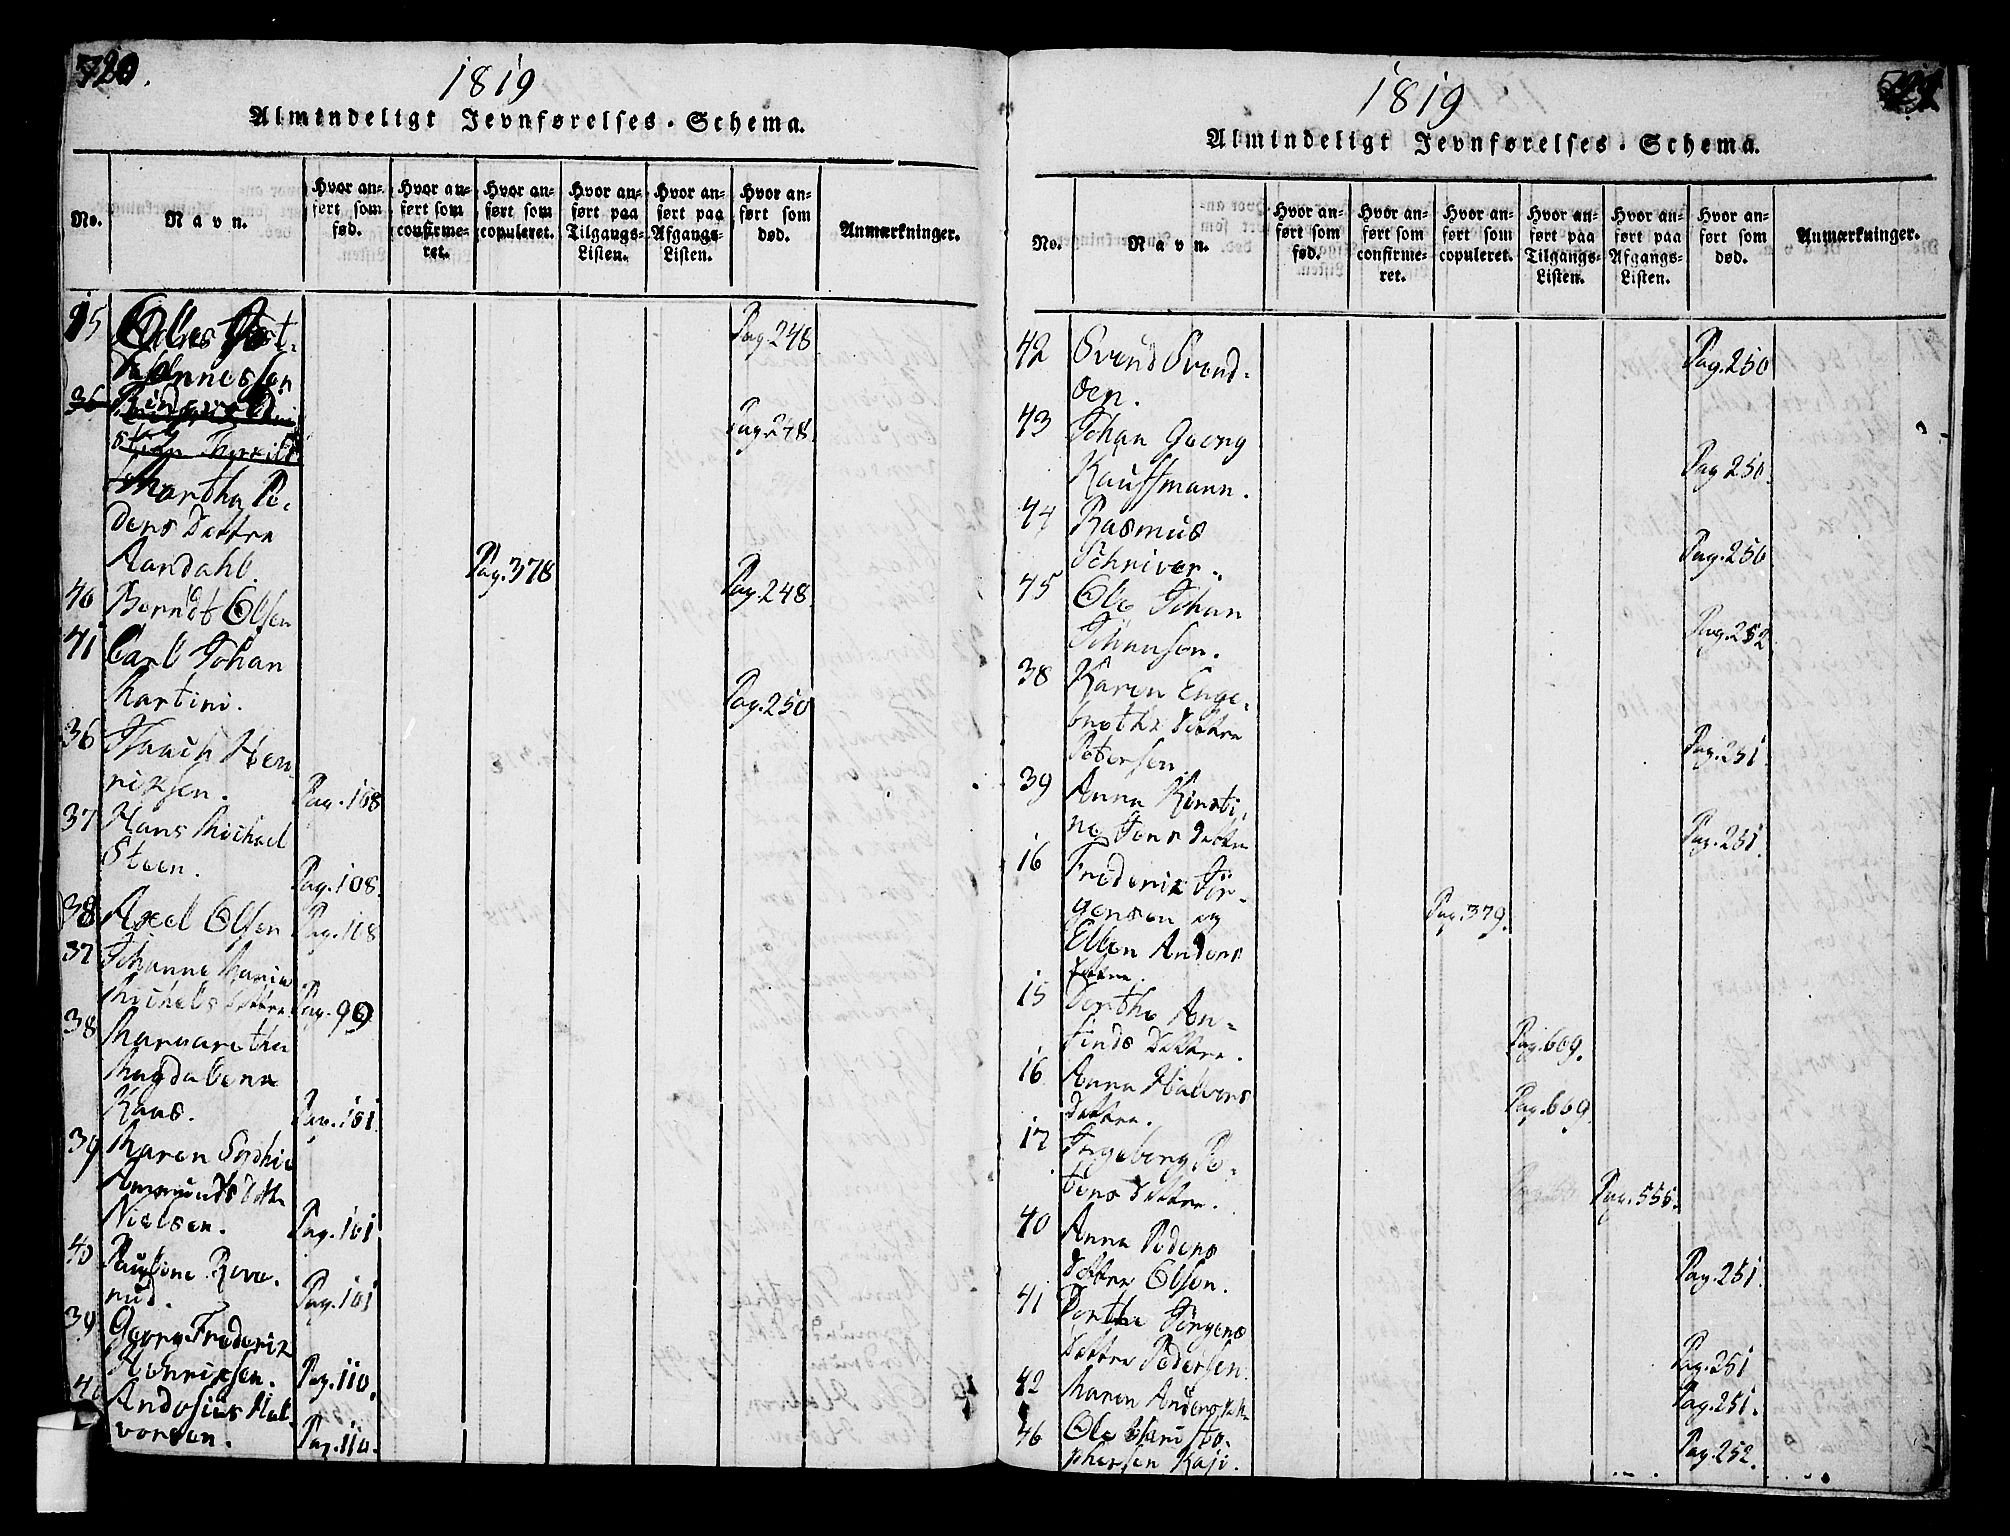 720.
1819
Almindeligt Jevnførelses-Schema.
No.
Navn.
Hvor anført som fød.
Hvor anført som confirmeret.
Hvor anført som copuleret.
Hvor anført paa Tilgangs-Listen.
Hvor anført paa Afgangs-Listen.
Hvor anført som død.
Anmærkninger.
Pag 248
36
Pag. 248.
Martha Pe-
ders Dattra
Aandahl. Pag. 378
40 Berndt Olsen Pag. 248.
41 Carl Johan
Martini. Pag. 250
36 Isach Hen-
riksen. Pag. 108
37 Hans Michael
Steen. Pag. 108.
38 Axel Olsen Pag. 108
37 Johanne Maria
Michels Dattra Pag. 99
38 Margaretha
Magdalena
Kaas. Pag. 101.
39 Maren Sophie
Ammunds Datter
Nielsen. Pag. 101
40 Pauline Reve-
rud. Pag. 101
39 Georg Frederik
Hehrichsen. Pag. 110.
40 Andosius Hal-
vorsen. Pag. 110.
1819
Almindeligt Jevnførelses-Schema.
No.
Navn.
Hvor anført som fød.
Hvor anført som confirmeret.
Hvor anført som copuleret.
Hvor anført paa Tilgangs-Listen.
Hvor anført paa Afgangs-Listen.
Hvor anført som død.
Anmærkninger.
42 Svend Svend-
sen. Pag. 250
43 Johan Georg
Kauffmann. Pag 250.
44 Rasmus
Schriver. Pag. 250
45 Ole Johan
Johansen. Pag. 252
38 Karen Enge-
breths Dattra
Petersen Pag. 251.
39 Anna Kirsti-
ne Jens Dattra Pag. 251.
16 Frederik Jör-
gensen og Pag. 379.
Ellen Anders
Dattra.
15 Dorthe An-
finds Dattra. Pag. 609.
16 Anna Halvors
Dattra. Pag. 609
17 Ingeborg Pe-
ters Dattra. Pag. 556.
40 Anna Peders
Datter Olsen. Pag. 251.
41 Dorthe Jörgens
Datter Pedersen. Pag. 251
42 Maren Anders Datter Pag. 251.
46 Ole Christo-
phersen Kaji. Pag. 252.